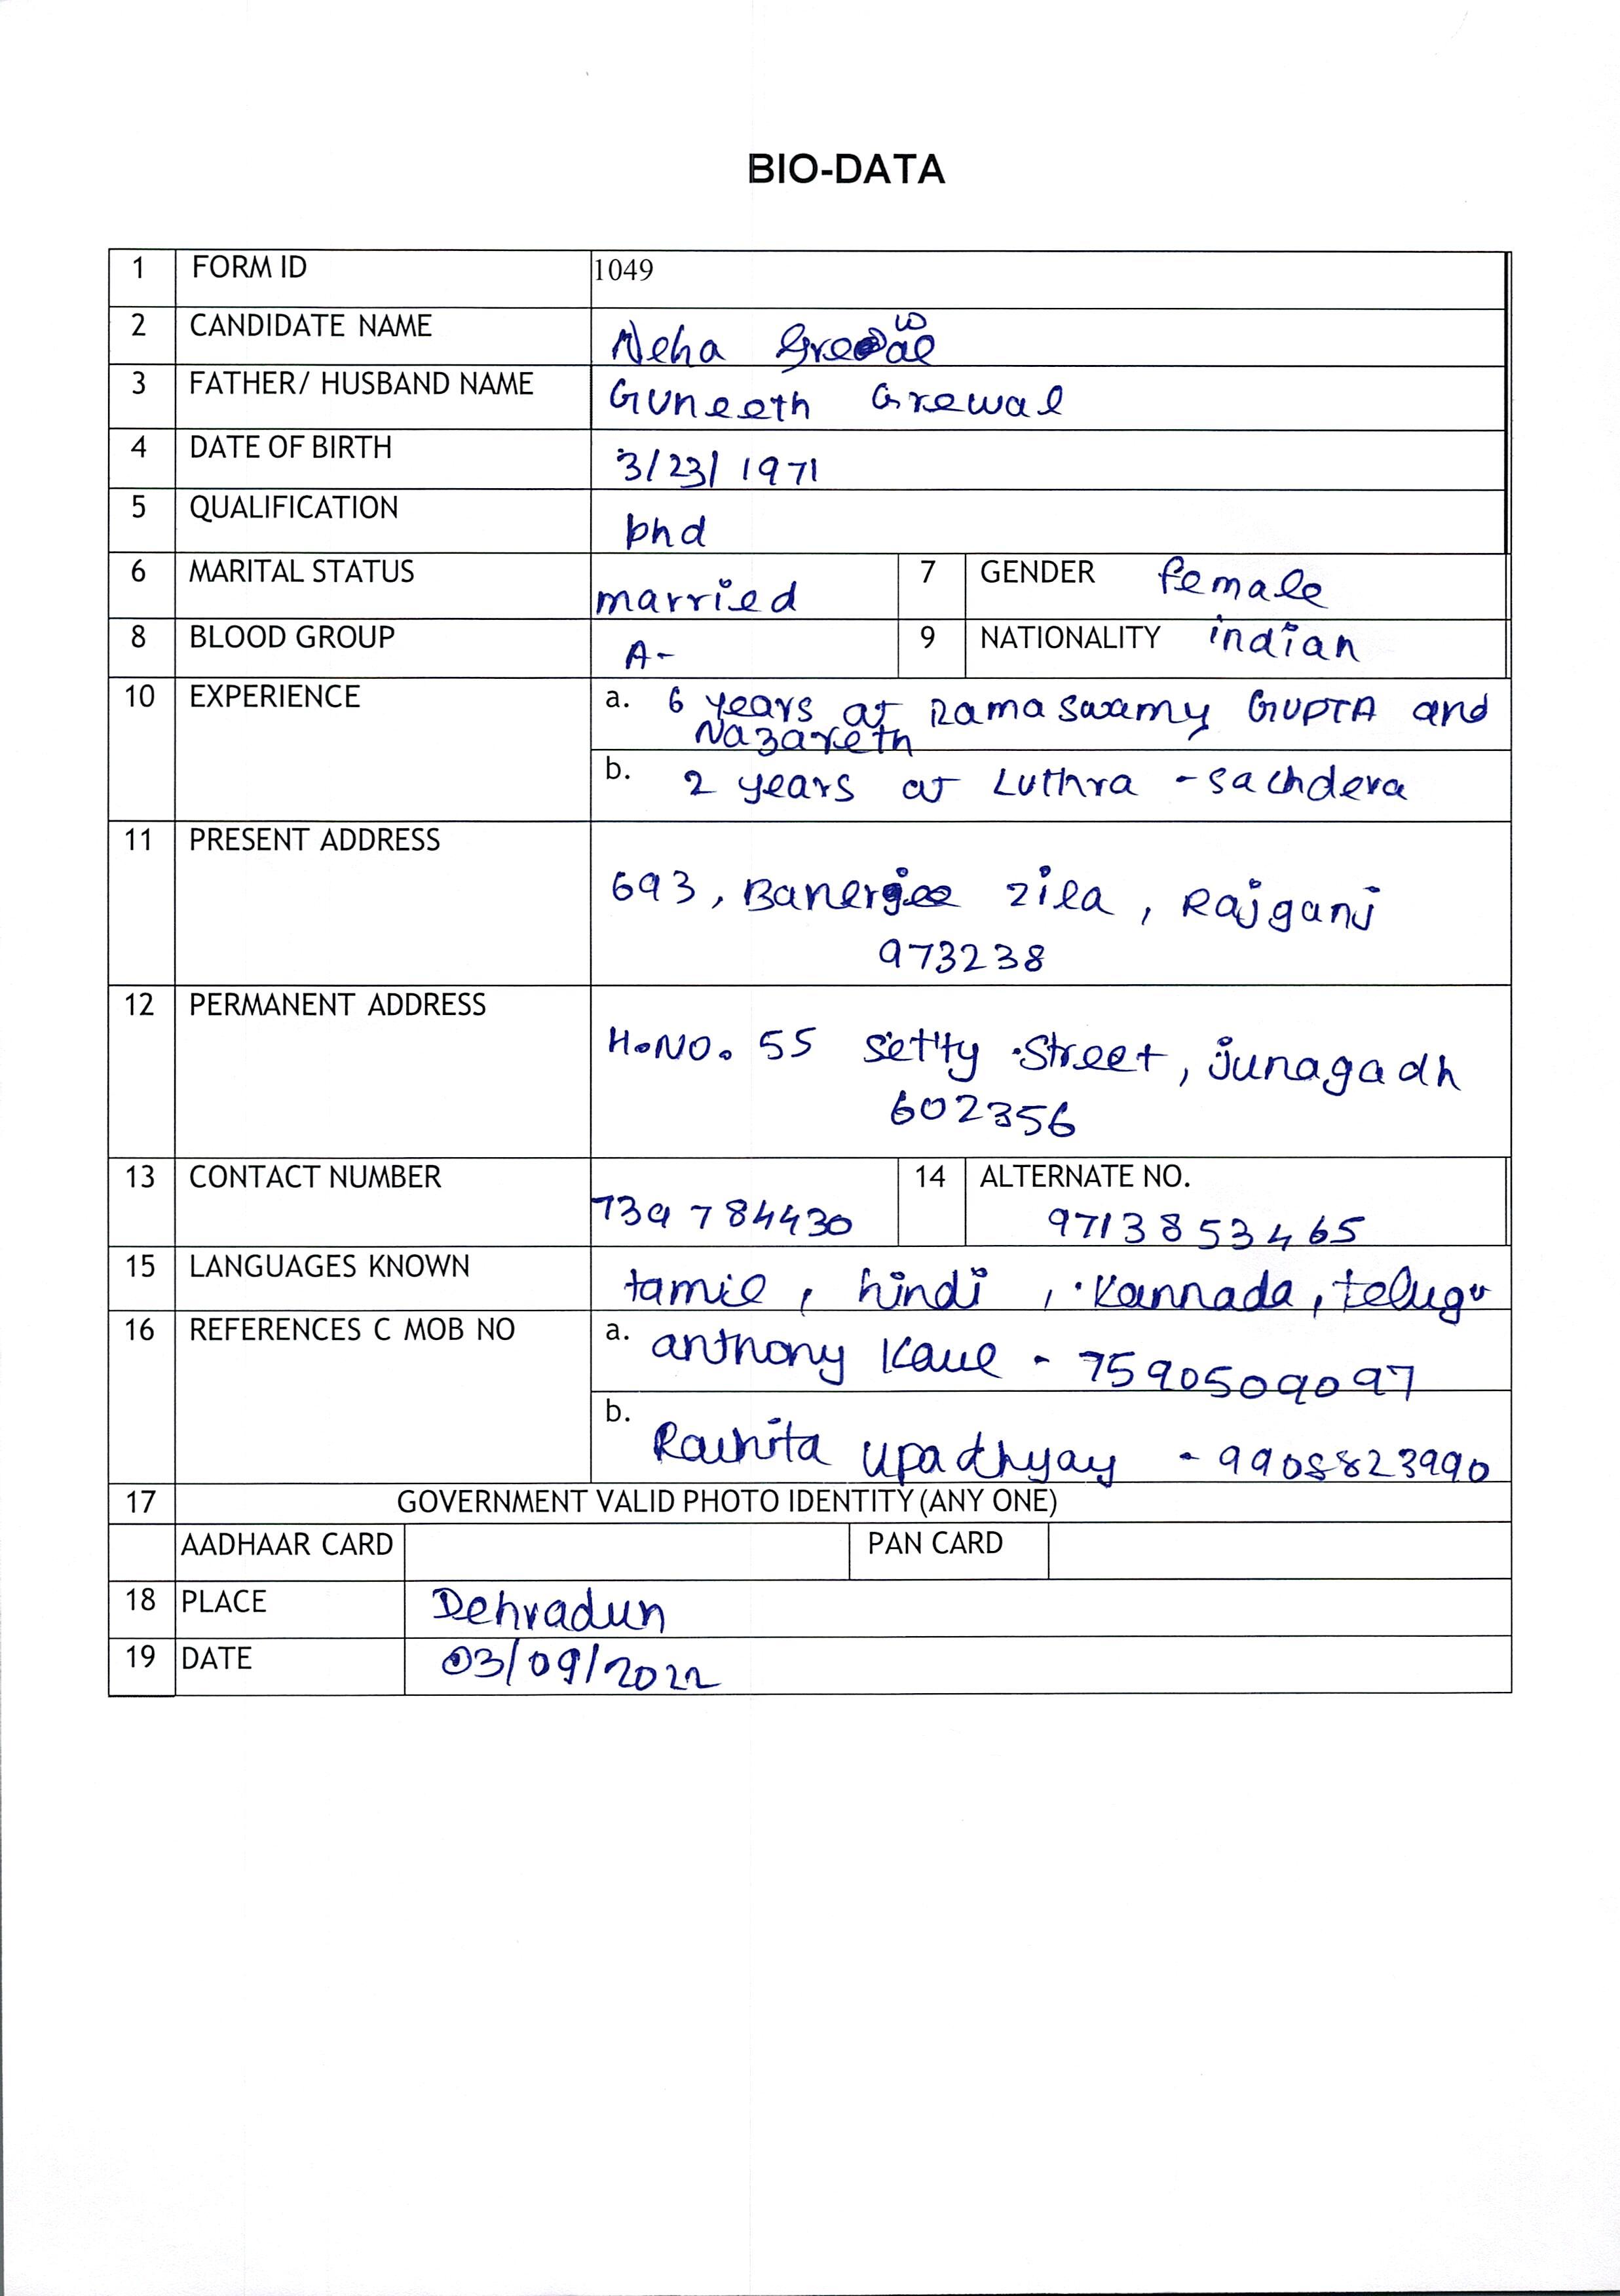 BIO-DATA
1 FORM ID 1049
2 CANDIDATE NAME Neha Grewal
3 FATHER/ HUSBAND NAME Guneeth Grewal
4 DATE OF BIRTH 3/23/1971
5 QUALIFICATION phd
6 MARITAL STATUS married 7 GENDER female
8 BLOOD GROUP A- 9 NATIONALITY indian
10 EXPERIENCE a. 6 years at Ramaswamy GUPTA and
Nazareth
b. 2 years at Luthra - Sachdeva
11 PRESENT ADDRESS
693, Banerjee zila, Rajganj
973238
12 PERMANENT ADDRESS
H.NO. 55 Setty Street, junagadh
602356
13 CONTACT NUMBER 739784430 14 ALTERNATE NO.
9713853465
15 LANGUAGES KNOWN tamil, hindi, Kannada, telugu
16 REFERENCES C MOB NO a. anthony Kaul - 7590509097
b. Rachita upadhyay - 9908823990
17 GOVERNMENT VALID PHOTO IDENTITY (ANY ONE)
AADHAAR CARD PAN CARD
18 PLACE Dehradun
19 DATE 03/09/2022